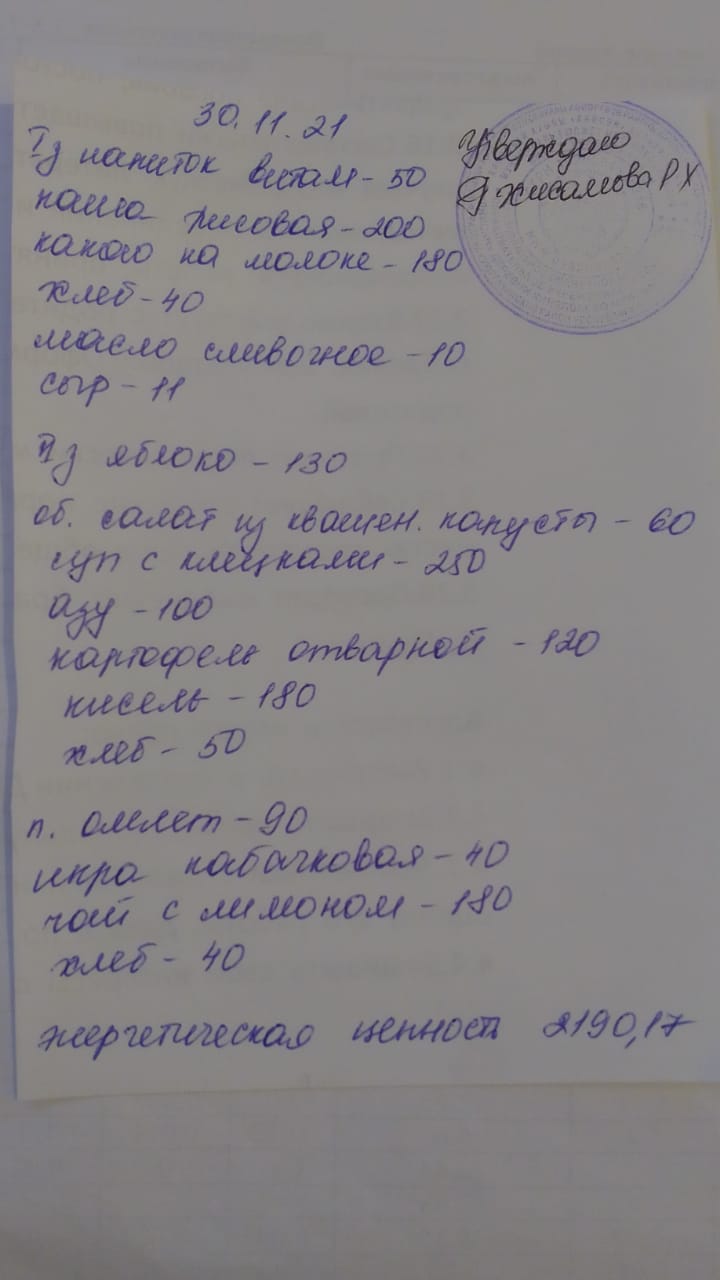 30.11.21
Утверждаю
Хисамова Р Х
Iз напиток витам - 50
каша рисовая - 200
какао на молоке - 180
хлеб - 40
масло сливочное - 10
сыр - 11
IIз яблоко - 130
об. салат из квашен. капусты - 60
суп с клецками - 250
азу - 100
картофель отварной - 120
кисель - 180
хлеб - 50
п. омлет - 90
икра кабачковая - 40
чай с лимоном - 180
хлеб - 40
энергетическая ценность 2190,17